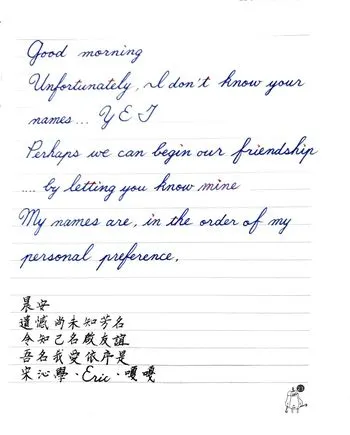 Good morning
Unfortunately, I don't know your
names... YET
Perhaps we can begin our friendship
.... by letting you know mine
My names are, in the order of my
personal preference,
晨安
遺憾尚未知芳名
令知己名啟友誼
吾名我愛依序是
宋沁學·Eric·嘎嘎